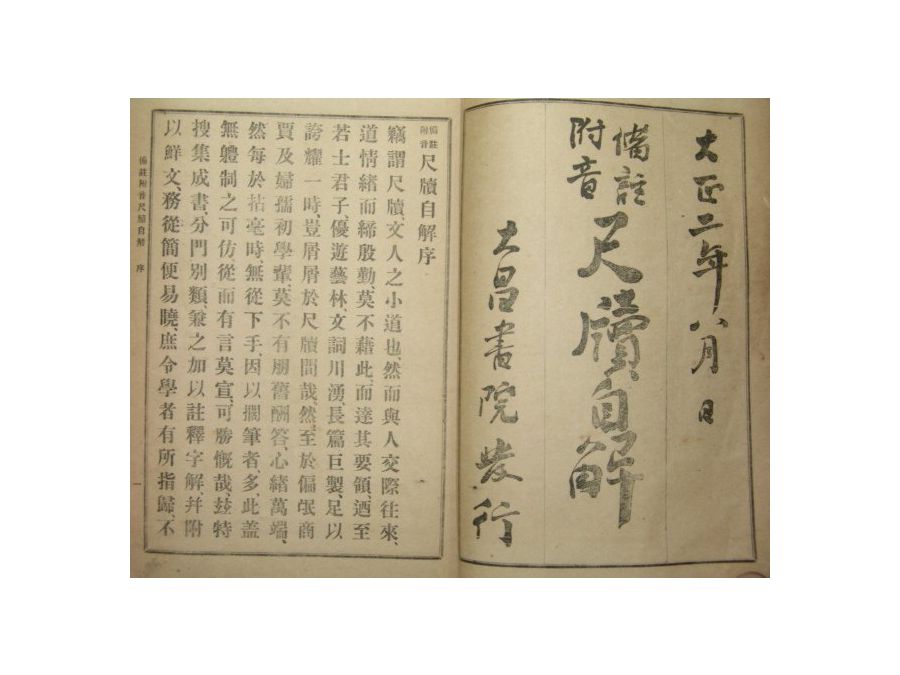 大正二年八月 日
備註
附音
尺牘自解
大昌書院發行
備註
附音
尺牘自解序
竊謂尺牘、文人之小道也、然而與人交際往來、
道情緒而締殷勤、莫不藉此、而達其要領、迺至
若士君子、優遊藝林、文詞川湧、長篇巨製、足以
誇耀一時、豈屑屑於尺牘間哉、然、至於偏氓商
賈及婦孺初學輩、莫不有朋舊酬答、心緒萬端、
然每於拈毫時、無從下手、因以擱筆者、多、此盖
無軆制之可仿從而有言莫宣、可勝慨哉、玆特
搜集成書、分門別類、兼之加以註釋字解、幷附
以鮮文、務從簡便易曉、庶令學者有所指歸、不
備註附音尺牘自解 序
一